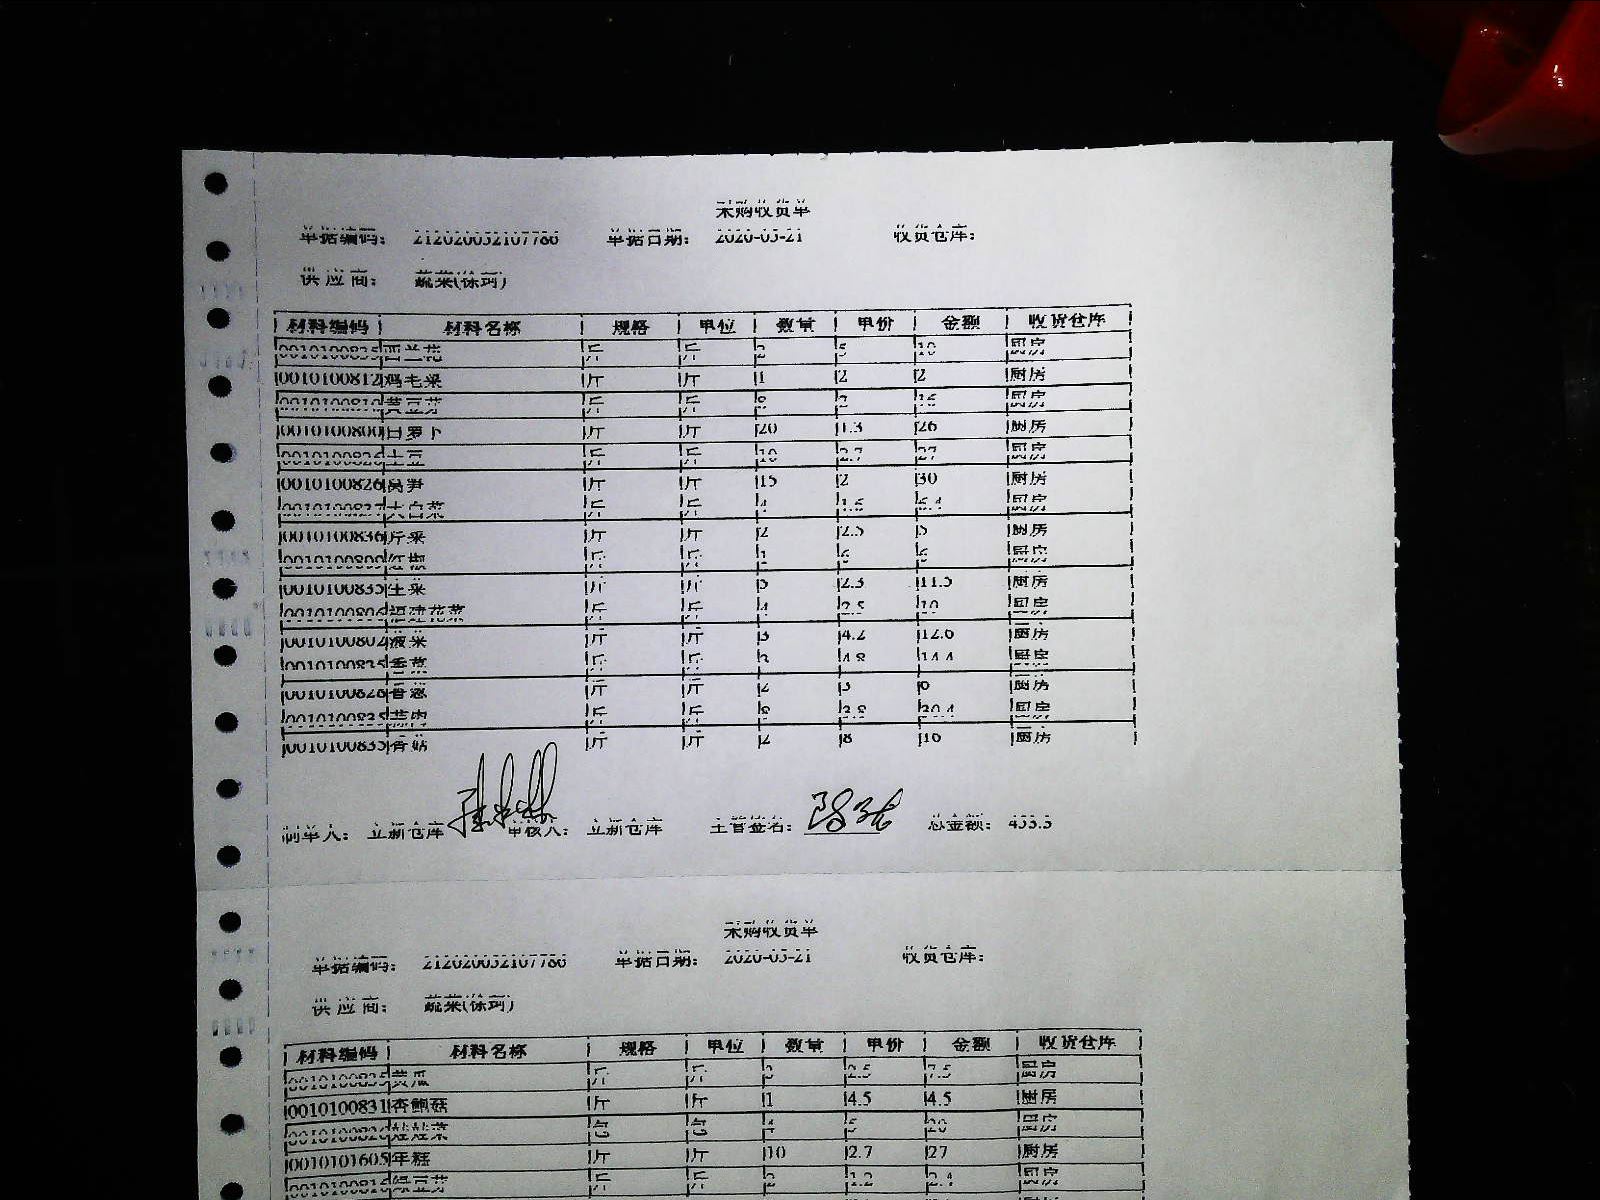 采购收货单
单据编码: 212020052107786 单据日期: 2020-05-21 收货仓库:
供应商: 蔬菜(徐珂)
材料编码 材料名称 规格 单位 数量 单价 金额 收货仓库
西兰花 斤 斤 2 5 10 厨房
0010100812 鸡毛菜 斤 斤 1 2 2 厨房
0010100810 黄豆芽 斤 斤 8 2 16 厨房
0010100800 白萝卜 斤 斤 20 1.3 26 厨房
土豆 斤 斤 10 2.7 27 厨房
0010100826 莴笋 斤 斤 15 2 30 厨房
大白菜 斤 斤 4 1.6 6.4 厨房
0010100836 芹菜 斤 斤 2 2.5 5 厨房
0010100809 红椒 斤 斤 1 6 6 厨房
0010100835 生菜 斤 斤 5 2.3 11.5 厨房
0010100806 福建花菜 斤 斤 4 2.5 10 厨房
0010100802 菠菜 斤 斤 3 4.2 12.6 厨房
0010100835 香菜 斤 斤 3 4.8 14.4 厨房
0010100828 香葱 斤 斤 2 3 6 厨房
0010100835 蒜肉 斤 斤 8 3.8 30.4 厨房
0010100835 香菇 斤 斤 2 8 16 厨房
制单人: 立新仓库 审核人: 立新仓库 主管签名: 总金额: 453.3
采购收货单
单据编码: 212020052107786 单据日期: 2020-05-21 收货仓库:
供应商: 蔬菜(徐珂)
材料编码 材料名称 规格 单位 数量 单价 金额 收货仓库
0010100835 黄瓜 斤 斤 3 2.5 7.5 厨房
0010100831 杏鲍菇 斤 斤 1 4.5 4.5 厨房
娃娃菜 包 包 4 5 20 厨房
0010101605 年糕 斤 斤 10 2.7 27 厨房
0010100816 绿豆芽 斤 斤 2 1.2 2.4 厨房